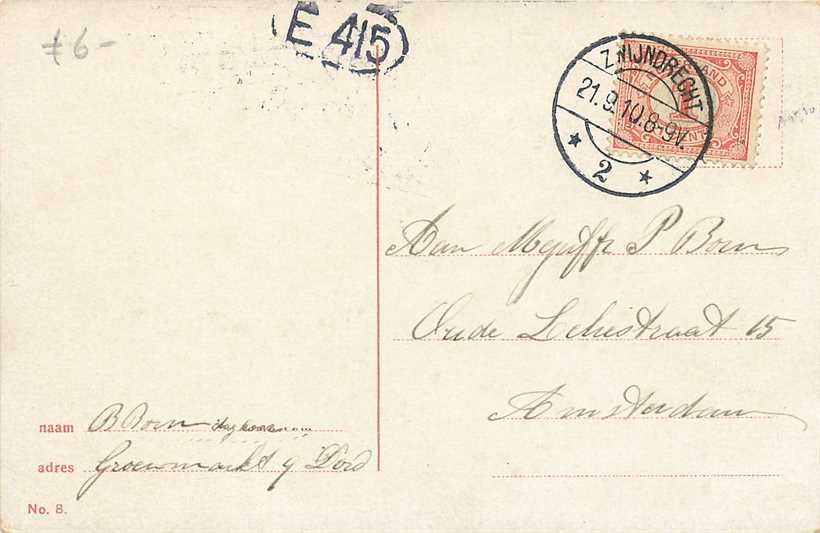 f 6-
E 415
ZWIJNDRECHT
21.9.10.8-9V.
2
NEDERLAND
1
CENT
Aan Mejuffr P Born
Oude Leliestraat 15
Amsterdam
naam B Born
adres Groenmarkt 9 Dord
No. 8.